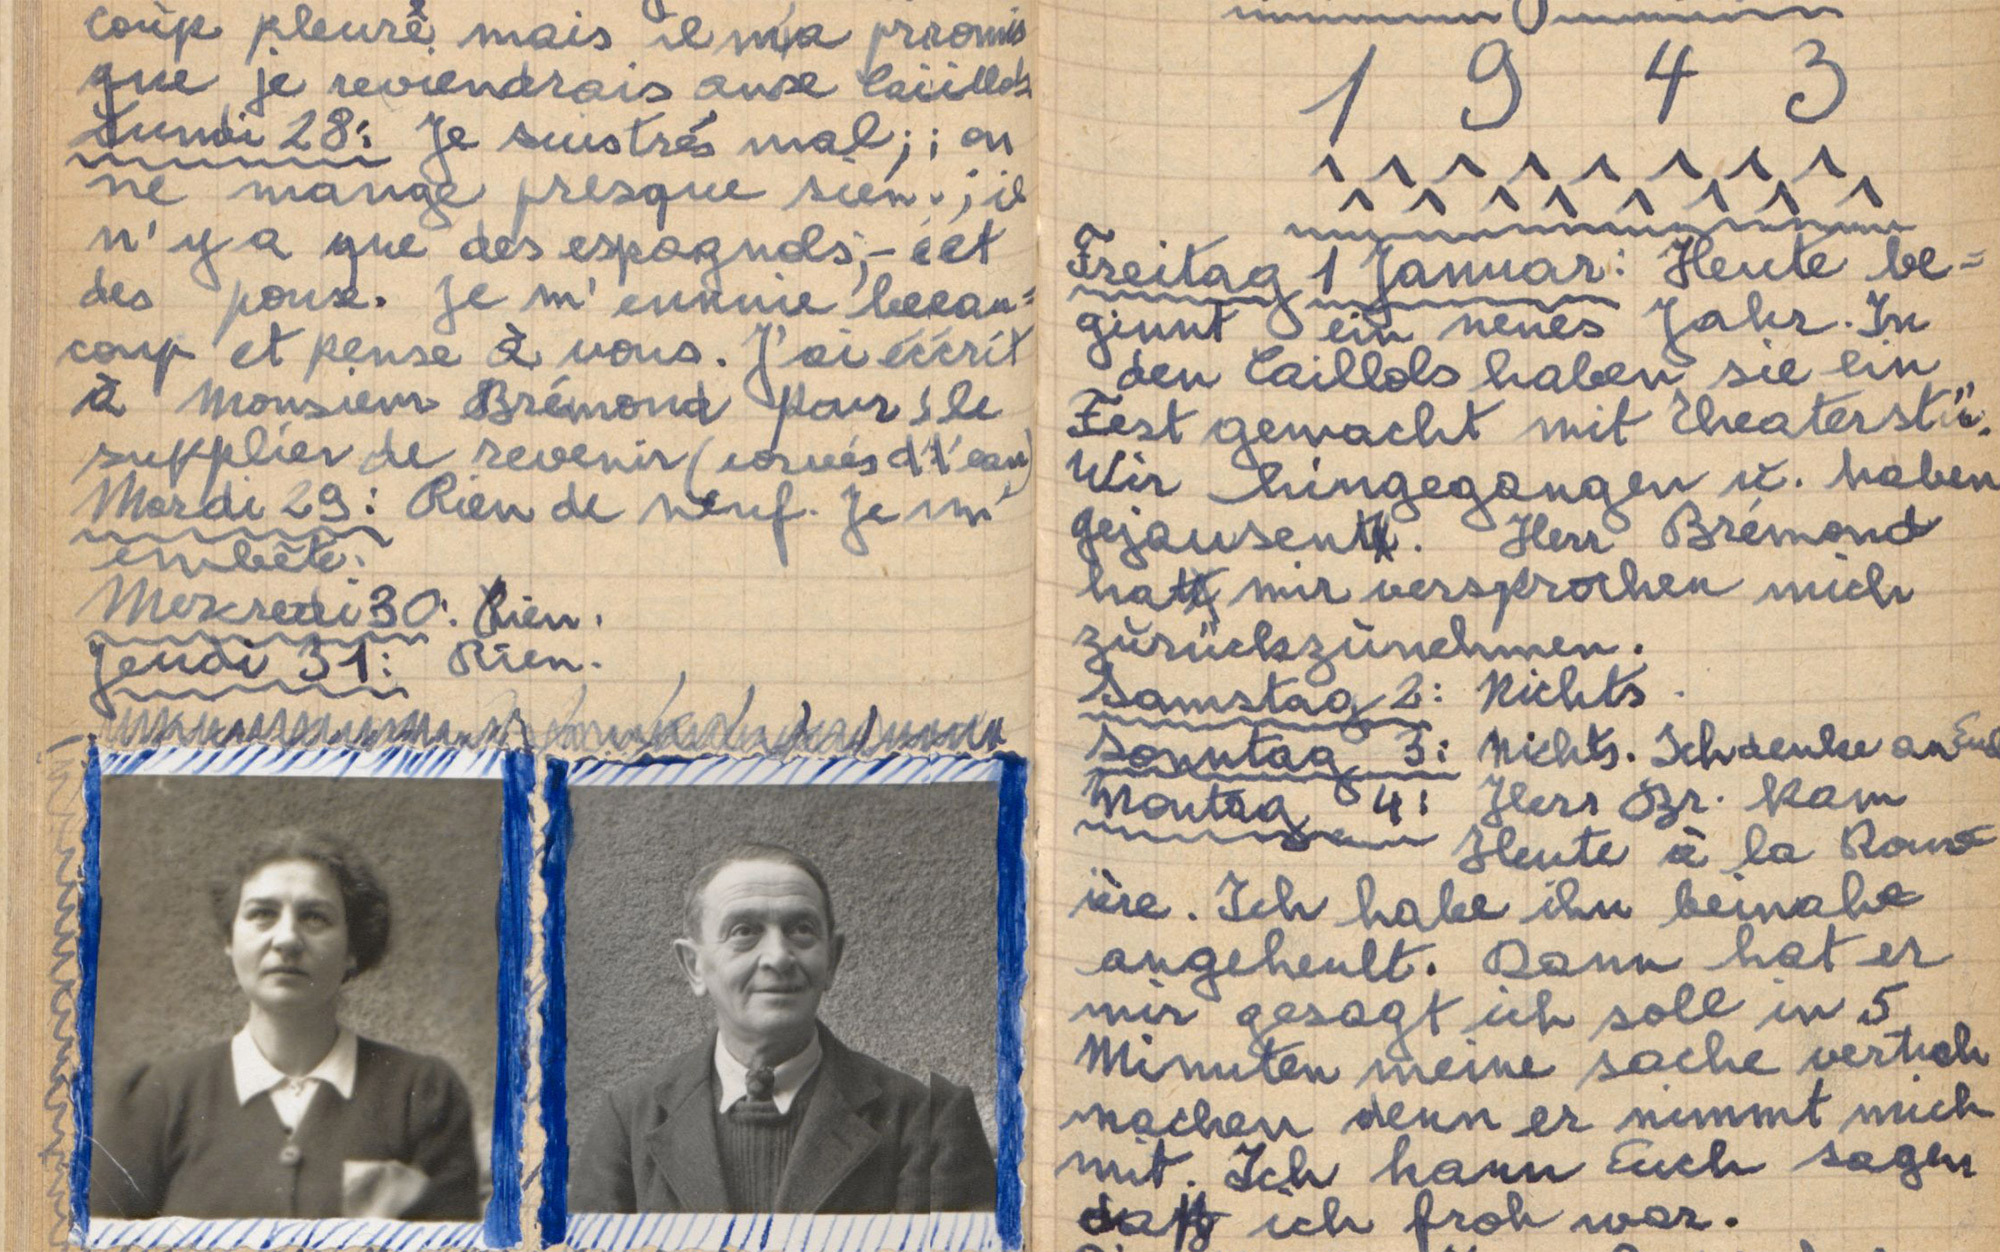 coup pleuré mais il m'a prromis
que je reviendrais ause Caiillols
Lundi 28: Je suistrés mal;; on
ne mange presque rien.; il
n'y a que des espagnols;- eet
des poux. Je m'ennuie beeau=
coup et pense à vous. J'ai éécrit
à Monsieur Brémond pour le
supplier de revenir (corvés d'l'eau)
Mardi 29: Rien de neuf. Je m'
embête.
Mekredi 30. Rien.
Jeudi 31: Rien.
1943
Freitag 1 Januar: Heute be=
ginnt ein neues Jahr. In
den Caillols haben sie ein
Fest gemacht mit Theaterstü.
Wir hingegangen u. haben
gejausent. Herr Brémond
hat mir versprochen mich
zurückzunehmen.
Samstag 2: Nichts.
Sonntag 3: Nichts. Ich denke an Euch
Montag 4: Herr Br. kam
Heute à la Rouv
ière. Ich habe ihn beinahe
angeheult. Dann hat er
mir gesagt ich soll in 5
Minuten meine sache vertich
machen denn er nimmt mich
mit. Ich kann Euch sagen
daß ich froh war.